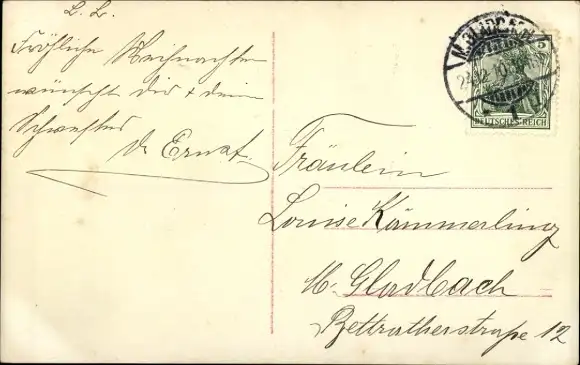 L. L.
Fröhliche Weihnachten
wünscht dir + dein
Schwester
Dr Ernst.
Fräulein
Louise Kämmerling
M. Gladbach
Bettratherstraße 12
M. GLADBACH
23.12.10
5
DEUTSCHES REICH